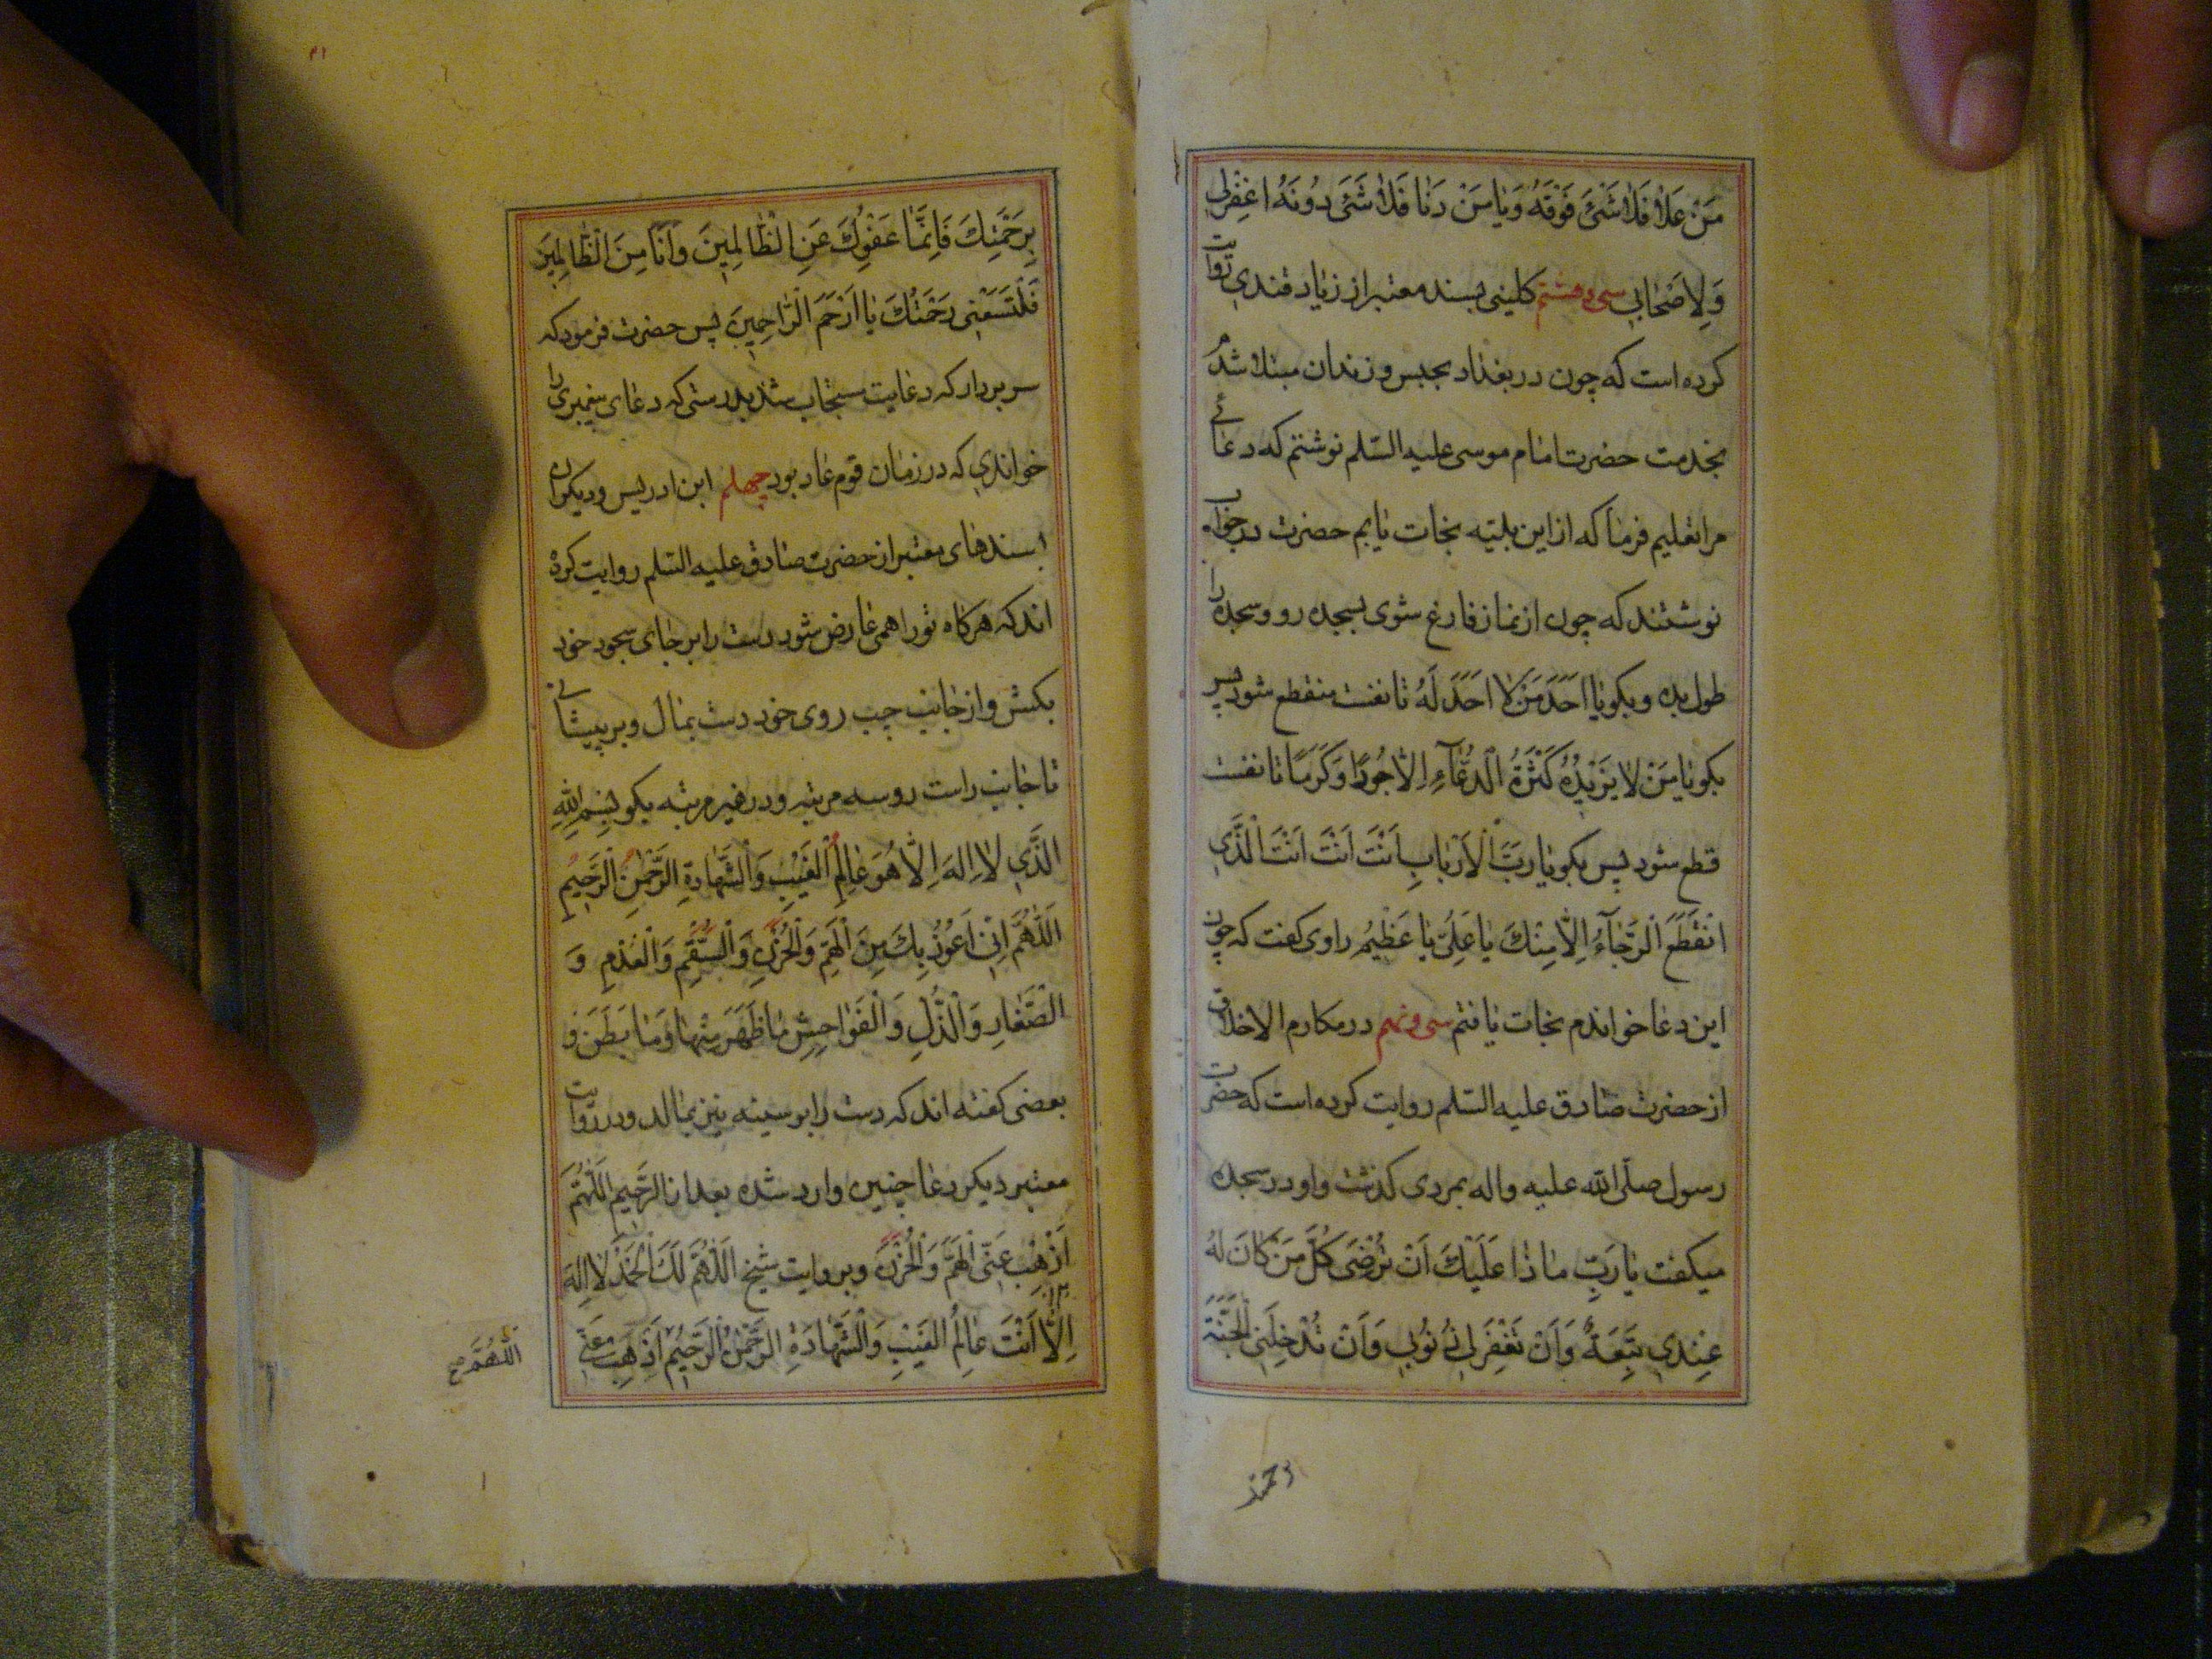 مَنْ عَلاٰ فَلاٰ شَئَ فَوْقَهُ وَيٰا مَنْ دَنٰا فَلاٰ شَئَ دُونَهُ اغْفِرْلِي
وَلِاَصْحٰابِي سی و هشتم کلینی بسند معتبر از زیاد قندی روایت
کرده است که چون در بغداد بحبس و زندان مبتلا شدم
بخدمت حضرت امام موسی علیه السّلم نوشتم که دعائے
مرا تعلیم فرما که از این بلیّه نجات یابم حضرت در جواب
نوشتند که چون از نماز فارغ شوی بسجده رو و سجده را
طول بده و بکو یٰا اَحَدَ مَنْ لاٰ اَحَدَ لَهُ تا نفست منقطع شود پس
بکو یٰا مَنْ لاٰ يَزِيْدُهُ كَثْرَةُ الْدُّعٰآءِ اِلاّٰ جُودًا وَكَرَمًا تا نفست
قطع شود پس بکو یٰا رَبَّ الْاَرْبٰابِ اَنْتَ اَنْتَ اَنْتَ الَّذَي
انْقَطَعَ الْرَّجٰآءُ اِلاّٰ مِنْكَ يٰا عَلِىُّ يٰا عَظِيْمُ راوی کفت که چون
این دعا خواندم نجات یافتم سی و نهم در مکارم الاخلاق
از حضرت صادق علیه السّلم روایت کرده است که حضرت
رسول صلّی الله علیه واله بمردی کذشت و او در سجده
میکفت يٰا رَبِّ مٰا ذٰا عَلَيْكَ اَنْ تُرْضَىَ كُلَّ مَنْ كٰانَ لَهُ
عِنْدِي تَبِعَةٌ وَاَنْ تَغْفِرَ لِي ذُنُوبِي وَاَنْ تُدْخِلَنِي الْجَنَّةَ
برحمتک
بِرَحْمَتِكَ فَاِنَّمٰا عَفْوُكَ عَنِ الْظّٰالِمِينَ وَاَنَا مِنَ الْظّٰالِمِينَ
فَلْتَسَعْنِي رَحْمَتُكَ يٰا اَرْحَمَ الْرّٰاحِمِينَ پس حضرت فرمود که
سر بردار که دعایت مستجاب شد بدرستی که دعای پیغمبری را
خواندی که در زمان قوم عاد بود چهلم ابن ادریس و دیکران
بسندهای معتبر از حضرت صادق علیه السّلم روایت کرده
اند که هرکاه تو را همی عارض شود دست را بر جای سجود خود
بکش و از جانب چپ روی خود دست بمال و بر پیشانی
تا جانب راست رو سه مرتبه و در هر مرتبه بکو بِسْمِ اللّٰهِ
الَّذَي لاٰ اِلهَ اِلاّٰ هُوَ عٰالِمُ الْغَيْبِ وَالْشَّهٰادَةِ الرَّحْمٰنِ الْرَّحِيْمِ
اَللّٰهُمَّ اِنِّي اَعُوْذُ بِكَ مِنَ الْهَمِّ وَالْحُزْنِ وَالْسُّقْمِ وَالْعُدْمِ وَ
الْصَّغٰارِ وَالْذُّلِ وَالْفَوٰاحِشِ مٰا ظَهَرَ مِنْهٰا وَمٰا بَطَنَ و
بعضی کفته اند که دست را بر سینه نیز بمالد و در روایت
معتبر دیکر دعا چنین وارد شده بعد از الرَّحَيمِ اَللّٰهُمَّ
اَذْهِبْ عَنِّي الْهَمَّ وَالْحُزْنَ و بروایت شیخ اَللّٰهُمَّ لَكَ الْحَمْدُ لاٰ اِلهَ
اِلاّٰ اَنْتَ عٰالِمُ الْغَيْبِ وَالْشَّهٰادَةِ الرَّحْمٰنُ الْرَّحَيْمُ اَذْهِبْ عَنِّي
اَللّٰهُمَّ صح